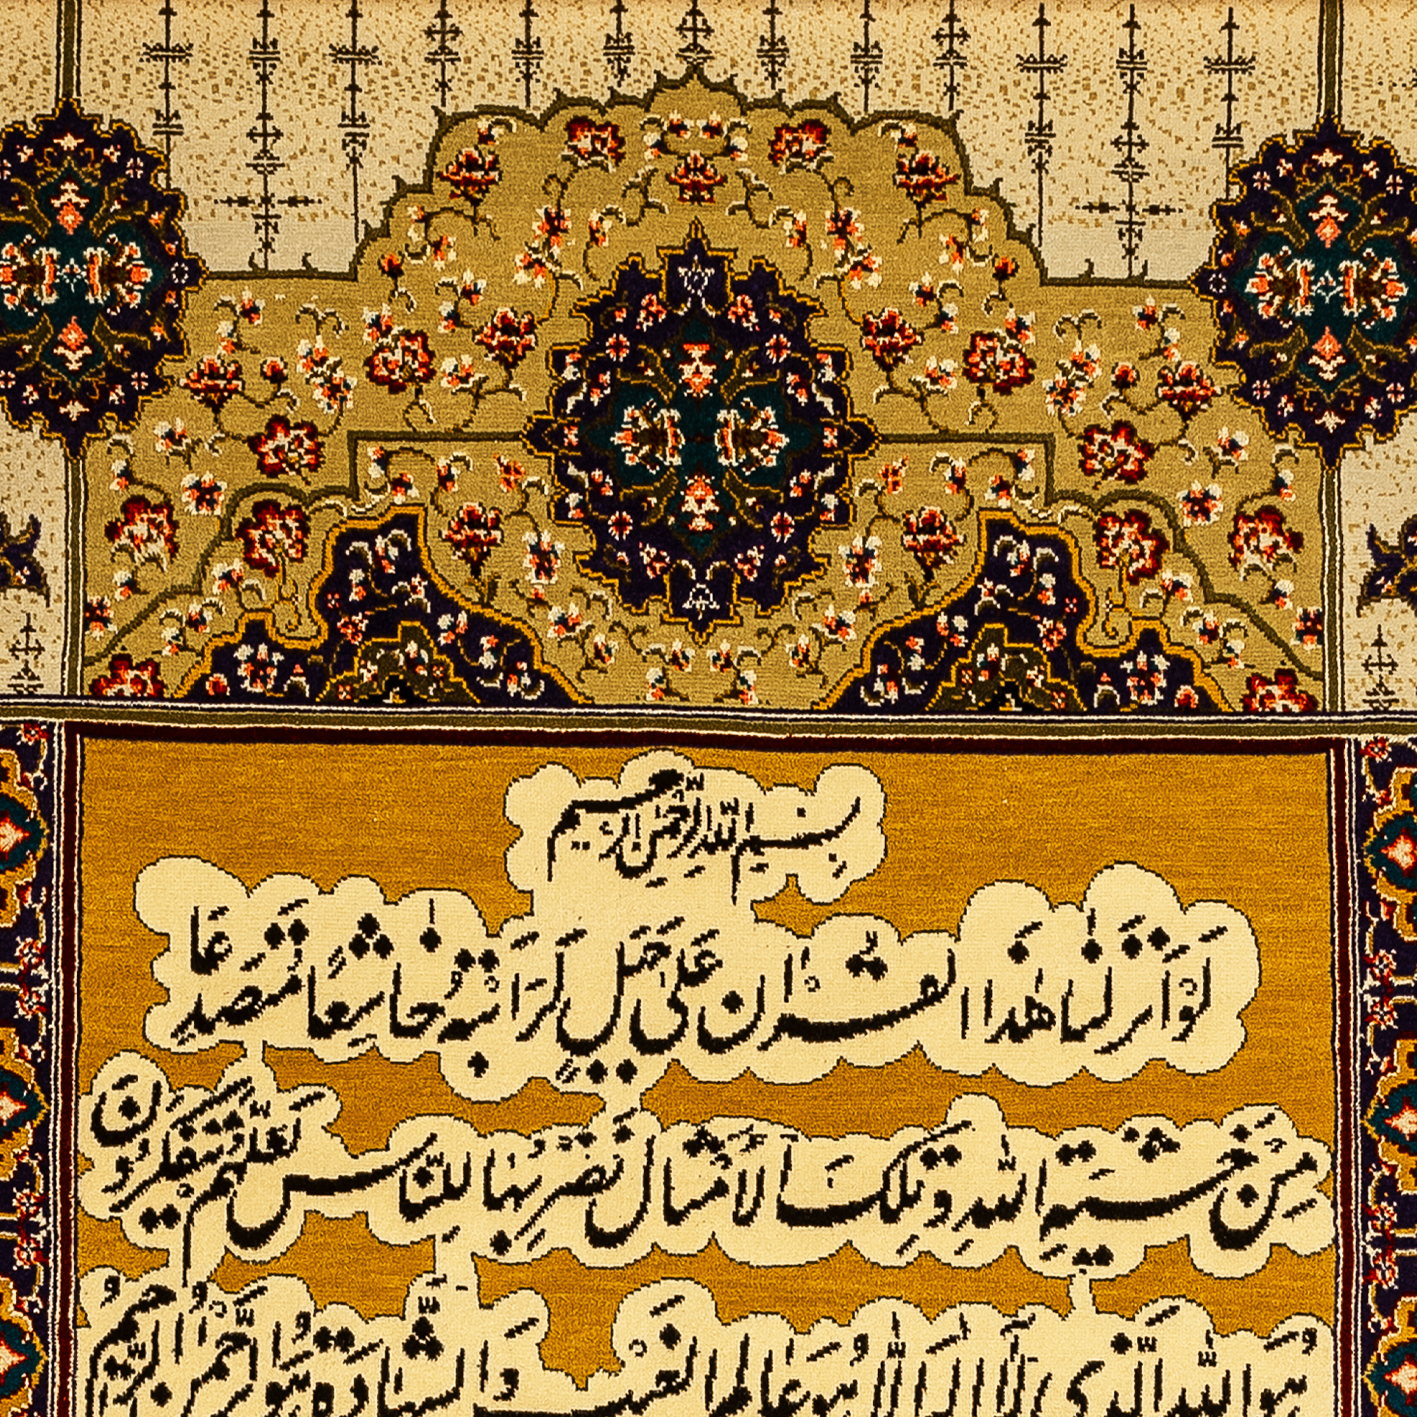 بِسْمِ اللّٰهِ الرَّحْمٰنِ الرَّحِیمِ
لَوْ أَنْزَلْنَا هٰذَا الْقُرْآنَ عَلَى جَبَلٍ لَرَأَيْتَهُ خَاشِعًا مُتَصَدِّعًا
مِنْ خَشْيَةِ اللّٰهِ وَتِلْكَ الْأَمْثَالُ نَضْرِبُهَا لِلنَّاسِ لَعَلَّهُمْ يَتَفَكَّرُونَ
هُوَ اللّٰهُ الَّذِي لَا إِلٰهَ إِلَّا هُوَ عَالِمُ الْغَيْبِ وَالشَّهَادَةِ هُوَ الرَّحْمٰنُ الرَّحِيمُ